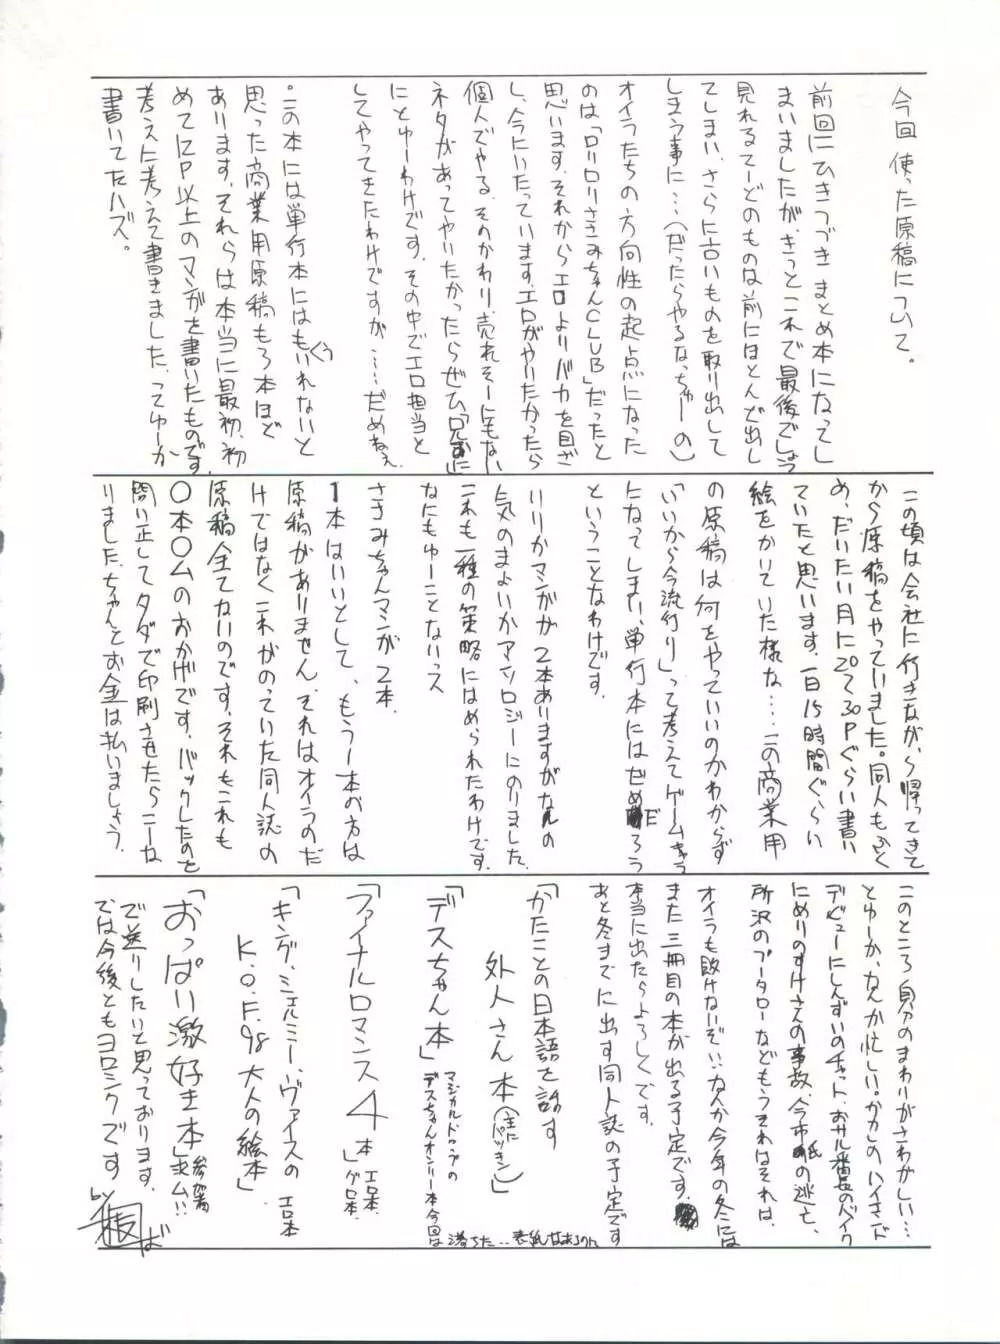 今回使った原稿について。
前回にひきつづきまとめ本になってし
まいましたが、きっとこれで最後でしょう
見れるてーどのものは前にほとんど出し
てしまい、さらに古いものを取り出して
しまう事に…(だったらやるなっちゅーの)
オイラたちの方向性の起点になった
のは「ロリロリささみちゃんCLUB」だったと
思います。それからエロよりバカを目ざ
し、今にいたっています。エロがやりたかったら
個人でやる。そのかわり、売れそーにもない
ネタがあってやりたかったらぜひ兄に
にとゆーわけです。その中でエロ担当と
してやってきたわけですが……だめねえ
・この本には単行本にはもういれないと
思った商業用原稿も3本ほど
あります。それらは本当に最初、初
めて12P以上のマンガを書いたものです。
考えに考えて書きました。ってゆーか
書いてたハズ。
この頃は会社に行きながら帰ってきて
から原稿をやっていました。同人もふく
め、だいたい月に20〜30Pぐらい書い
ていたと思います。一日15時間ぐらい
絵をかいていた様な……この商業用
の原稿は何をやっていいのかわからず
「いいから今流行り」って考えてゲームキャラ
になってしまい、単行本にはぜめだろう
ということなわけです。
りりかマンガが2本ありますがなんの
気のまよいかアンソロジーにのりました。
これも一種の策略にはめられたわけです。
なにもゆーことないっス
ささみちゃんマンガ2本。
1本はいいとして、もう一本の方は
原稿がありません。それはオイラのだ
けではなくこれがのっていた同人誌の
原稿全てないのです。それもこれも
〇本〇ムのおかげです。バックしたのを
問い正してタダで印刷させたらこーな
りました。ちゃんとお金は払いましょう。
このところ自分のまわりがさわがしい…
とゆーか、なんか忙しい。かかしのハイエド
デビューにしんすいのチャット、おサル番長のバイク
にめりのすけさんの事故、今市紙の逃亡、
所沢のプータローなどもうそれはそれは、
オイラも負けないぞ!!なんか今年の冬には
また三冊目の本が出る予定です。
本当に出たらよろしくです。
あと冬までに出す同人誌の予定です
「かたことの日本語を話す
外人さん本(主にパツキン)」
「デスちゃん本」マジカルドロップの
デスちゃんオンリー本今回は
落ちた…表紙
「ファイナルロマンス4本」エロ本、グロ本、
「キング、シェルミー、ヴァイスのエロ本
K.O.F.98大人の絵本」
「おっぱい激好き本」参加者求ム!!
で送りしたいと思っております。
では今後ともヨロシクです
by
ば